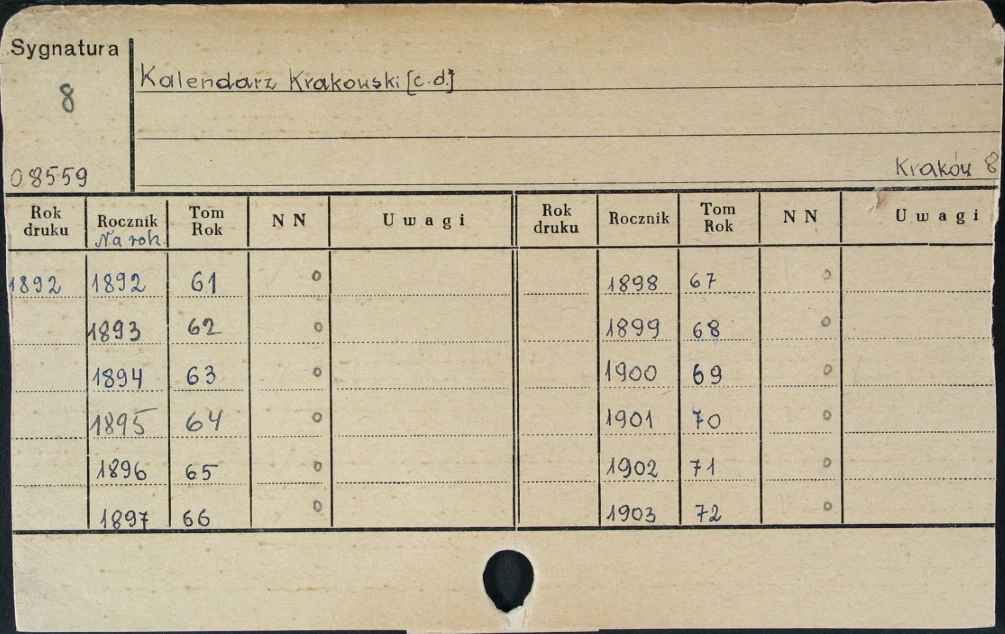 Sygnatura
8
08559
Kalendarz Krakowski [c.d.]
Kraków 8
Rok druku Rocznik Na rok Tom Rok N N Uwagi Rok druku Rocznik Tom Rok N N Uwagi
1892 1892 61 o 1898 67 o
1893 62 o 1899 68 o
1894 63 o 1900 69 o
1895 64 o 1901 70 o
1896 65 o 1902 71 o
1897 66 o 1903 72 o